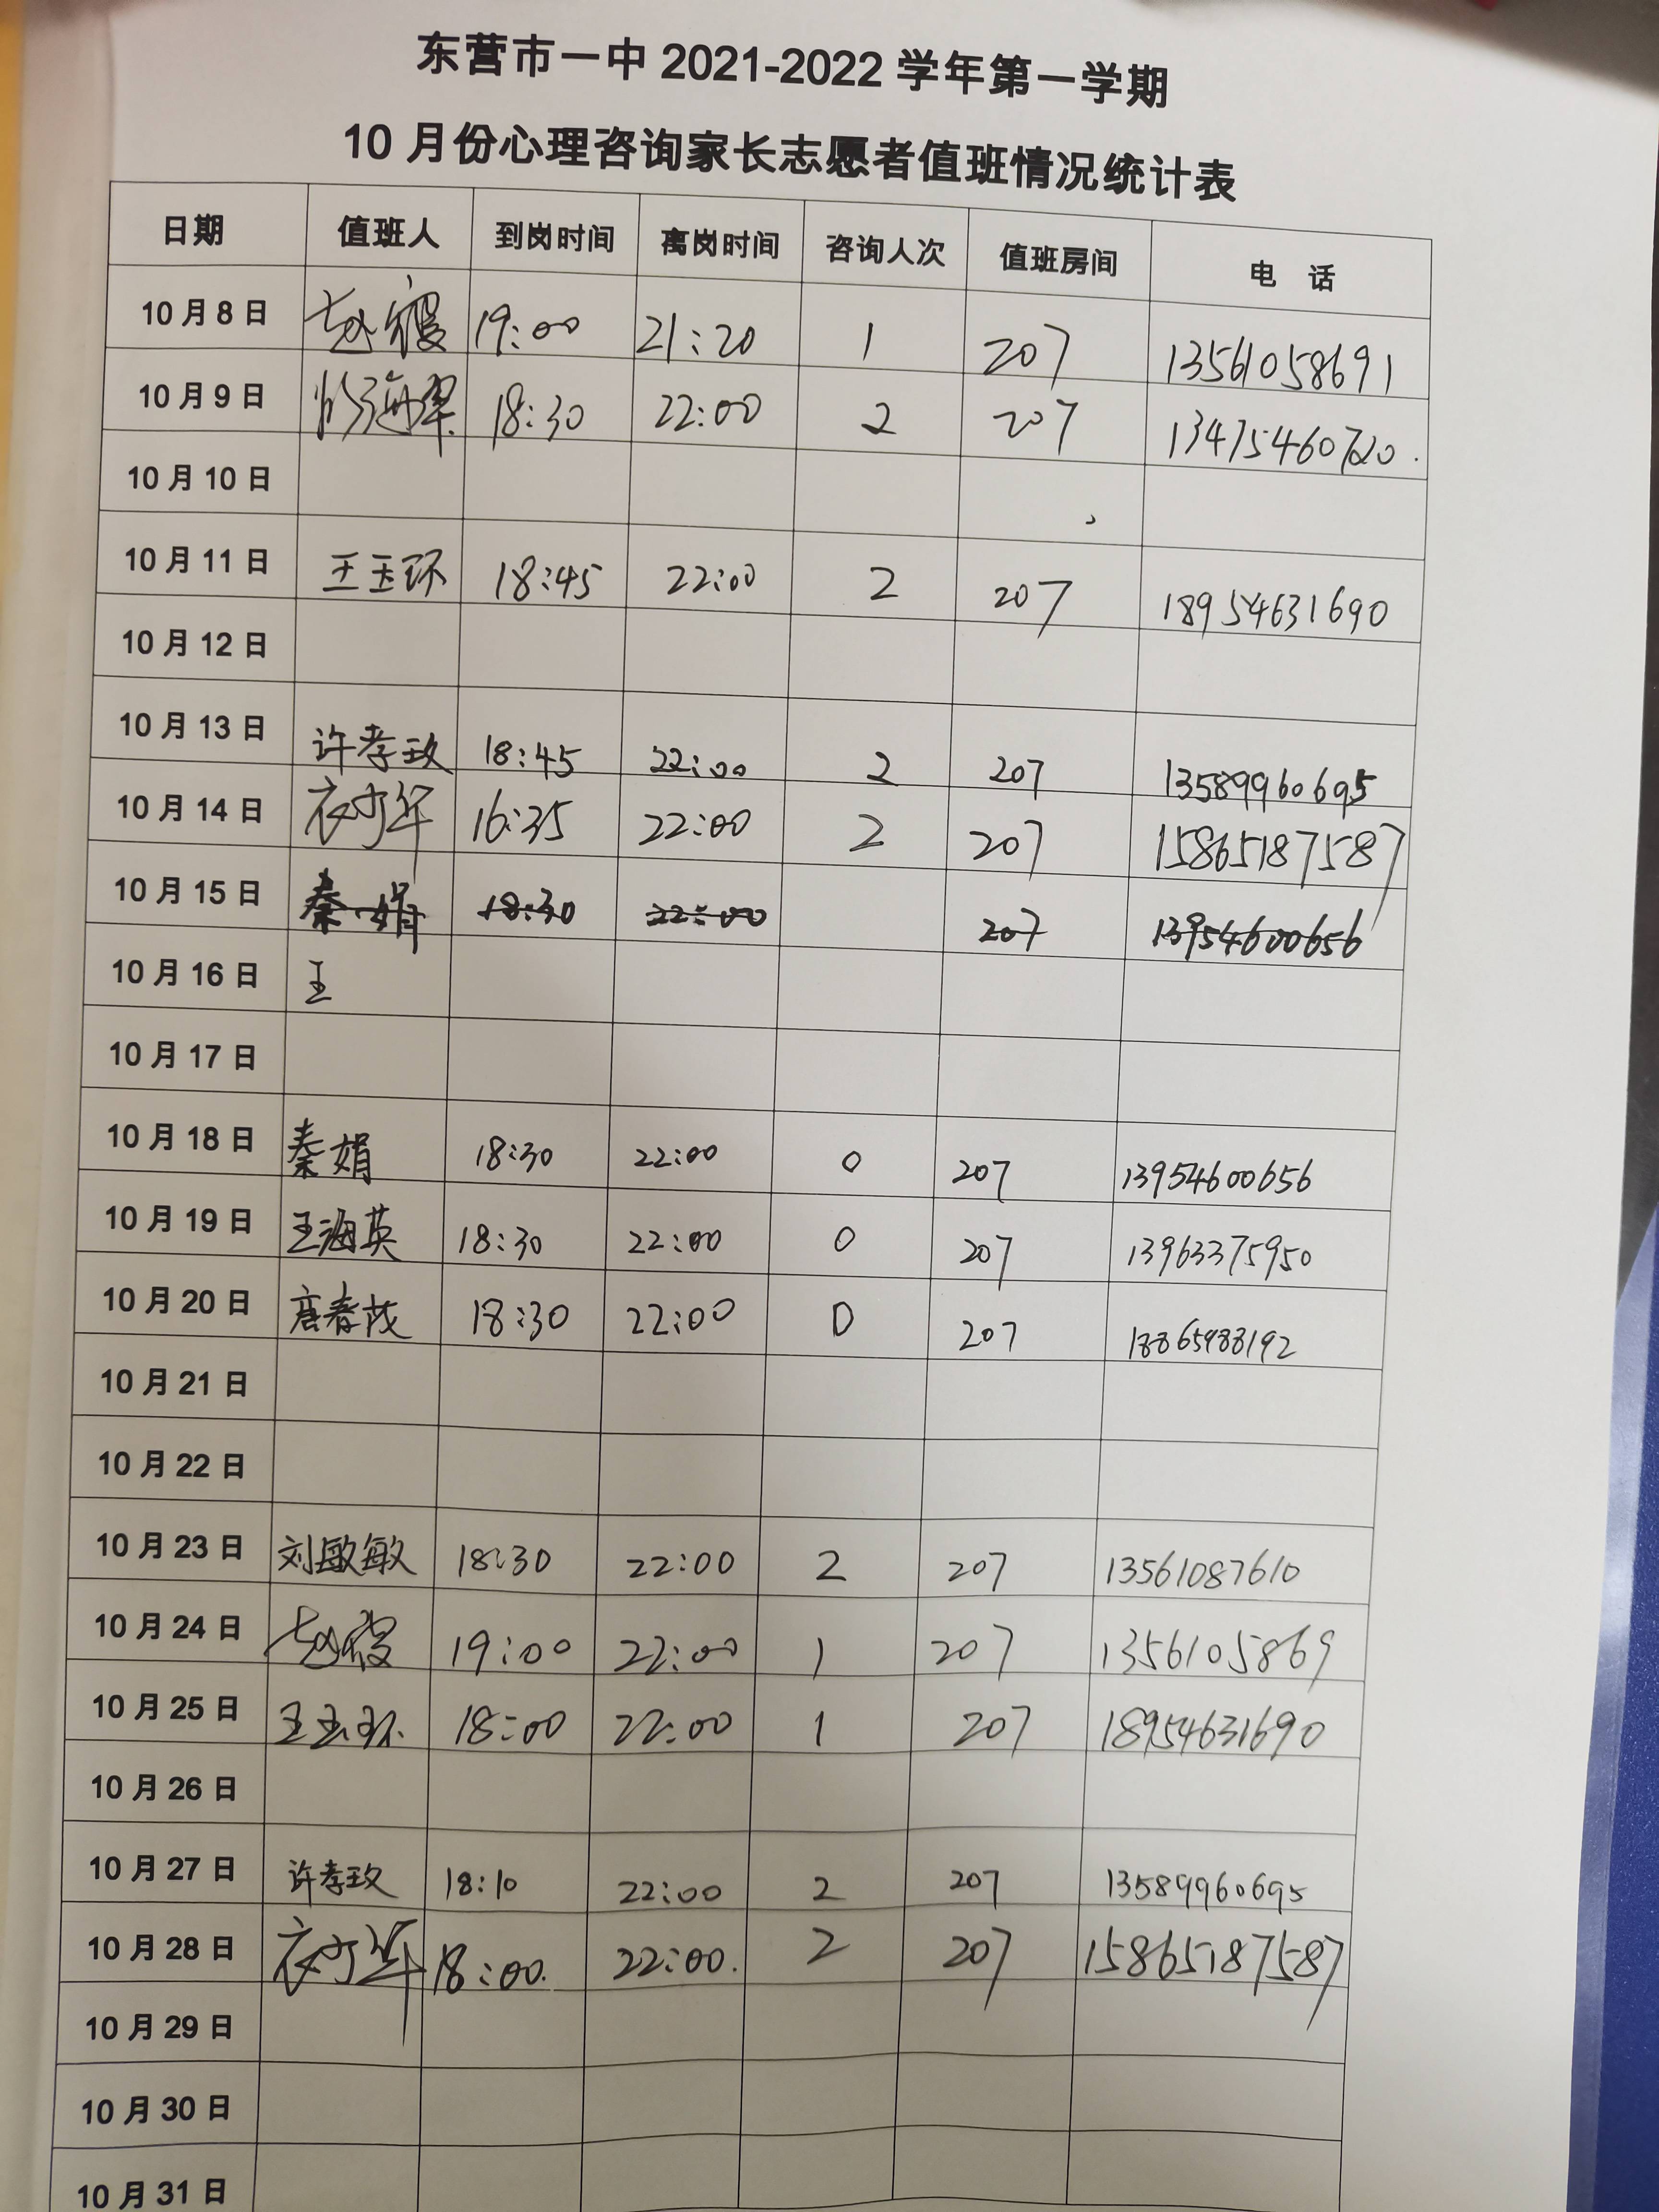 东营市一中 2021-2022 学年第一学期
10 月份心理咨询家长志愿者值班情况统计表
日期 值班人 到岗时间 离岗时间 咨询人次 值班房间 电 话
10 月 8 日 赵霞 19:00 21:20 1 207 13561058691
10 月 9 日 18:30 22:00 2 207 13475460720.
10 月 10 日
10 月 11 日 王玉环 18:45 22:00 2 207 18954631690
10 月 12 日
10 月 13 日 许孝玫 18:45 22:00 2 207 13589960695
10 月 14 日 衣少军 16:35 22:00 2 207 15865187587
10 月 15 日 秦娟 18:30 22:00 207 13954600656
10 月 16 日 王
10 月 17 日
10 月 18 日 秦娟 18:30 22:00 0 207 13954600656
10 月 19 日 王海英 18:30 22:00 0 207 13963375950
10 月 20 日 唐春茂 18:30 22:00 0 207
10 月 21 日
10 月 22 日
10 月 23 日 刘敏敏 18:30 22:00 2 207 13561087610
10 月 24 日 赵霞 19:00 22:00 1 207 1356105869
10 月 25 日 王玉环 18:00 22:00 1 207 18954631690
10 月 26 日
10 月 27 日 许孝玫 18:10 22:00 2 207 13589960695
10 月 28 日 衣少军 18:00. 22:00. 2 207 15865187587
10 月 29 日
10 月 30 日
10 月 31 日